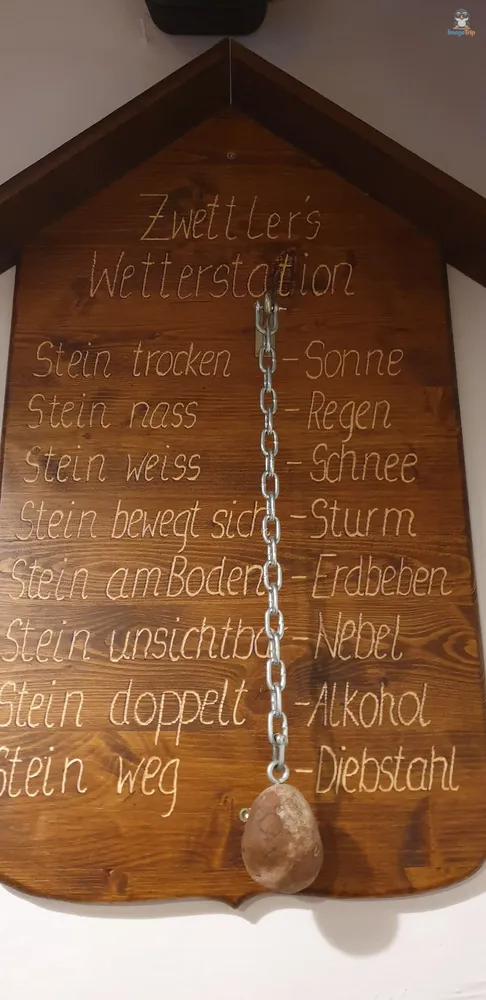 ImageTrip
Zwettler's
Wetterstation
Stein trocken - Sonne
Stein nass - Regen
Stein weiss - Schnee
Stein bewegt sich - Sturm
Stein am Boden - Erdbeben
Stein unsichtba - Nebel
Stein doppelt - Alkohol
Stein weg - Diebstahl